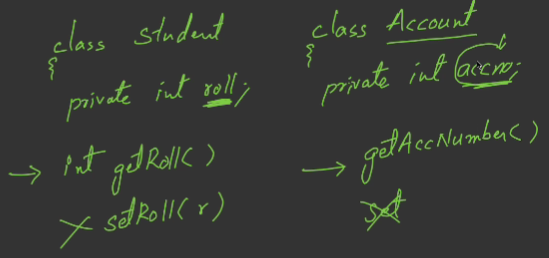 class Student
{
private int roll;
→ int getRoll()
× setRoll(r)
class Account
{
private int accno;
→ getAccNumber()
set